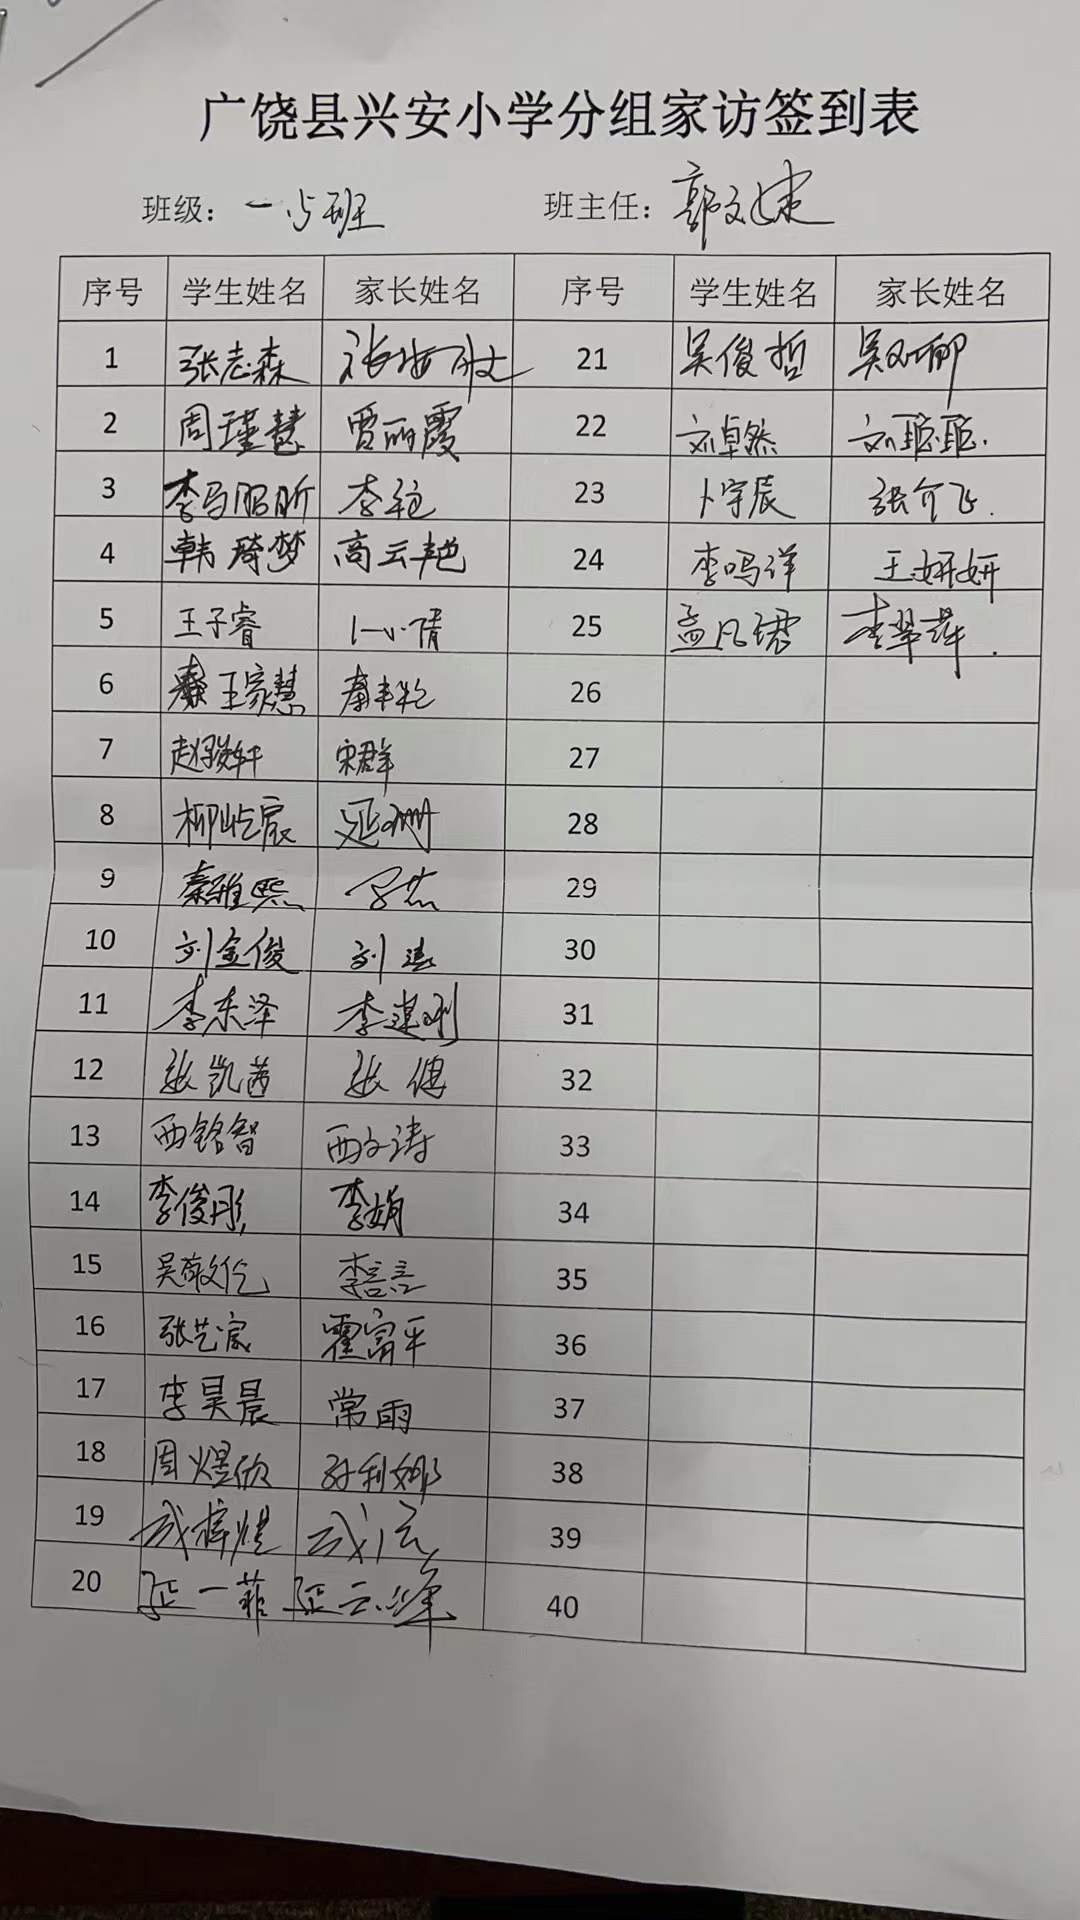 广饶县兴安小学分组家访签到表
班级：一.5班 班主任：郭文建
序号 学生姓名 家长姓名 序号 学生姓名 家长姓名
1 张志森 21 吴俊哲
2 周瑾慧 贾丽霞 22 刘卓然 刘聪聪.
3 李马昭昕 李艳 23 卜宇辰 张介飞.
4 韩琦梦 高云艳 24 李鸣洋 王妍妍
5 王子睿 25 孟凡珺 李翠萍.
6 秦王家慧 26
7 赵骏轩 宋群 27
8 柳屹宸 延珊 28
9 秦雅熙 29
10 刘金俊 刘 30
11 李东泽 李建刚 31
12 张凯茜 张倩 32
13 西铭智 西文涛 33
14 李俊彤 李娟 34
15 吴敬亿 李言言 35
16 张艺宸 霍富平 36
17 李昊晨 常雨 37
18 周煜欣 孙利娜 38
19 成梓煜 成 39
20 延一菲 延云峰 40